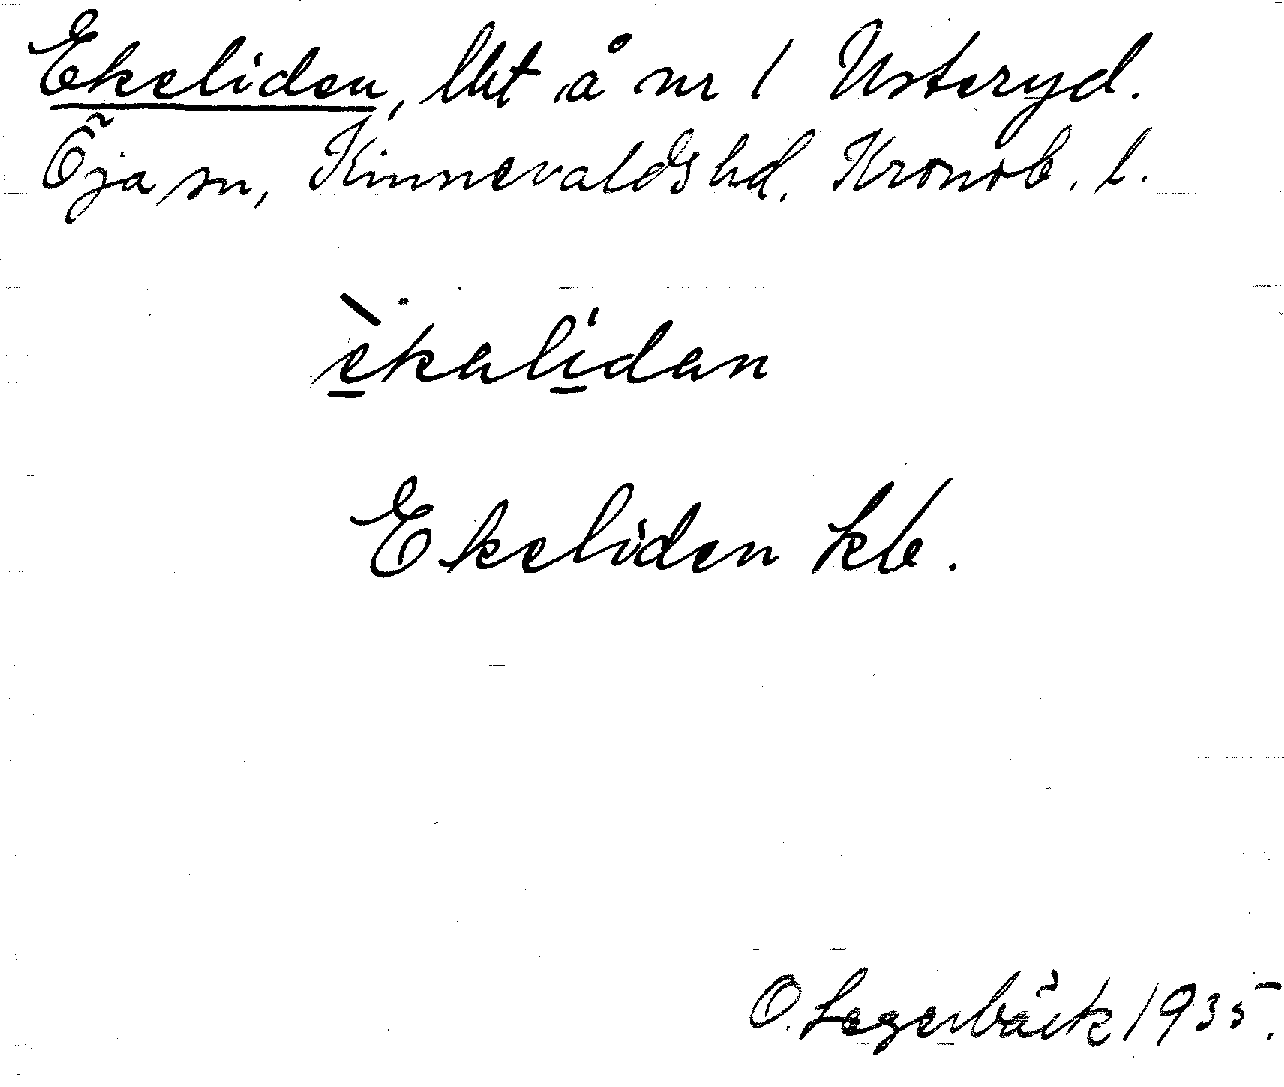 Ekeliden, lht å nr 1 Usteryd.
Öja sn, Kinnevalds hd. Kronob. l.
èkalídan
Ekeliden kb.
O. Lagerbäck 1935.